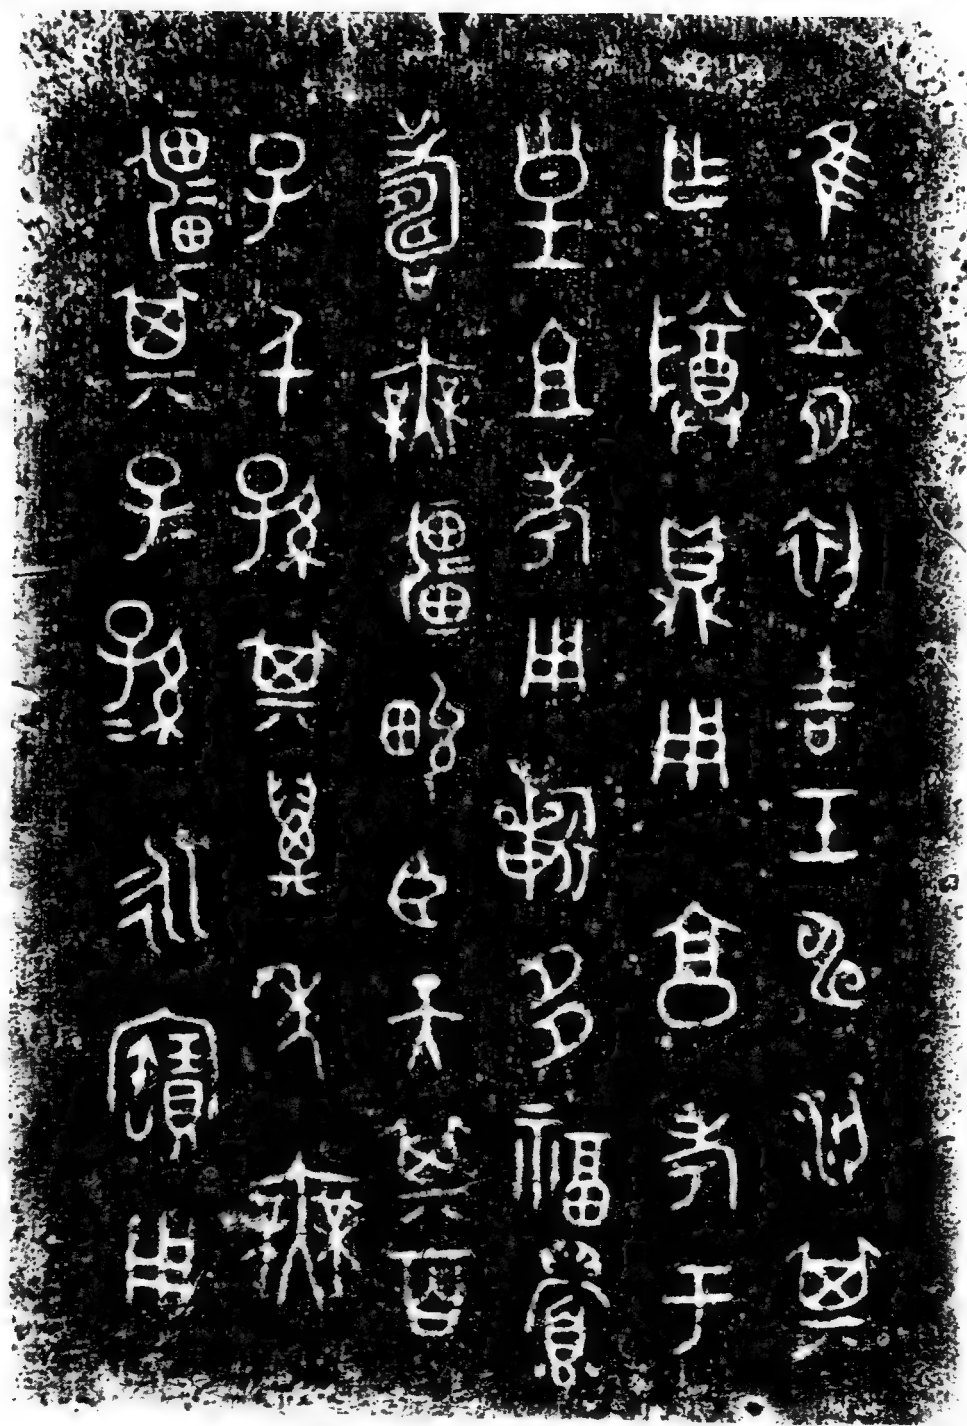 隹五月初吉壬申梁其
乍尊鼎用享孝于
皇且考用祈多福眉
壽無疆畯臣天其百
子千孫其萬年無
疆其子=孫=永寶用